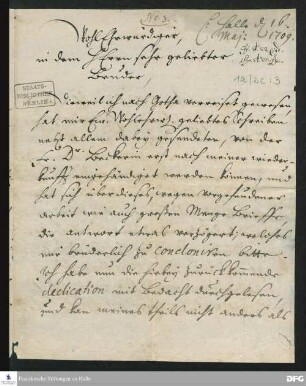 No. 3.
Halle d. 16.
Maji 1709.
WohlEhrwürdiger,
in dem Herrn sehr geliebter
Bruder,
12/2c : 3
STAATS-
BIBLIOTHEK
BERLIN
Dieweil ich nach Gotha verreiset gewesen,
hat mir Ew. WohlEhrw. geliebtes Schreiben
nebst allem dabey gesendeten, von der
Fr. Dr. Beckerin erst nach meiner wieder-
kunfft eingehändiget werden können, und
hat sich über dieses, wegen vorgefundener
arbeit wie auch großen Menge Brieffe,
die antwort etwas verzögert; welches
mir brüderlich zu condoniren bitte.
Ich habe nun die hierbey zurückkommende
dedication mit bedacht durchgelesen,
und kan meines theils nicht anders als
Franckesche Stiftungen zu Halle
DFG